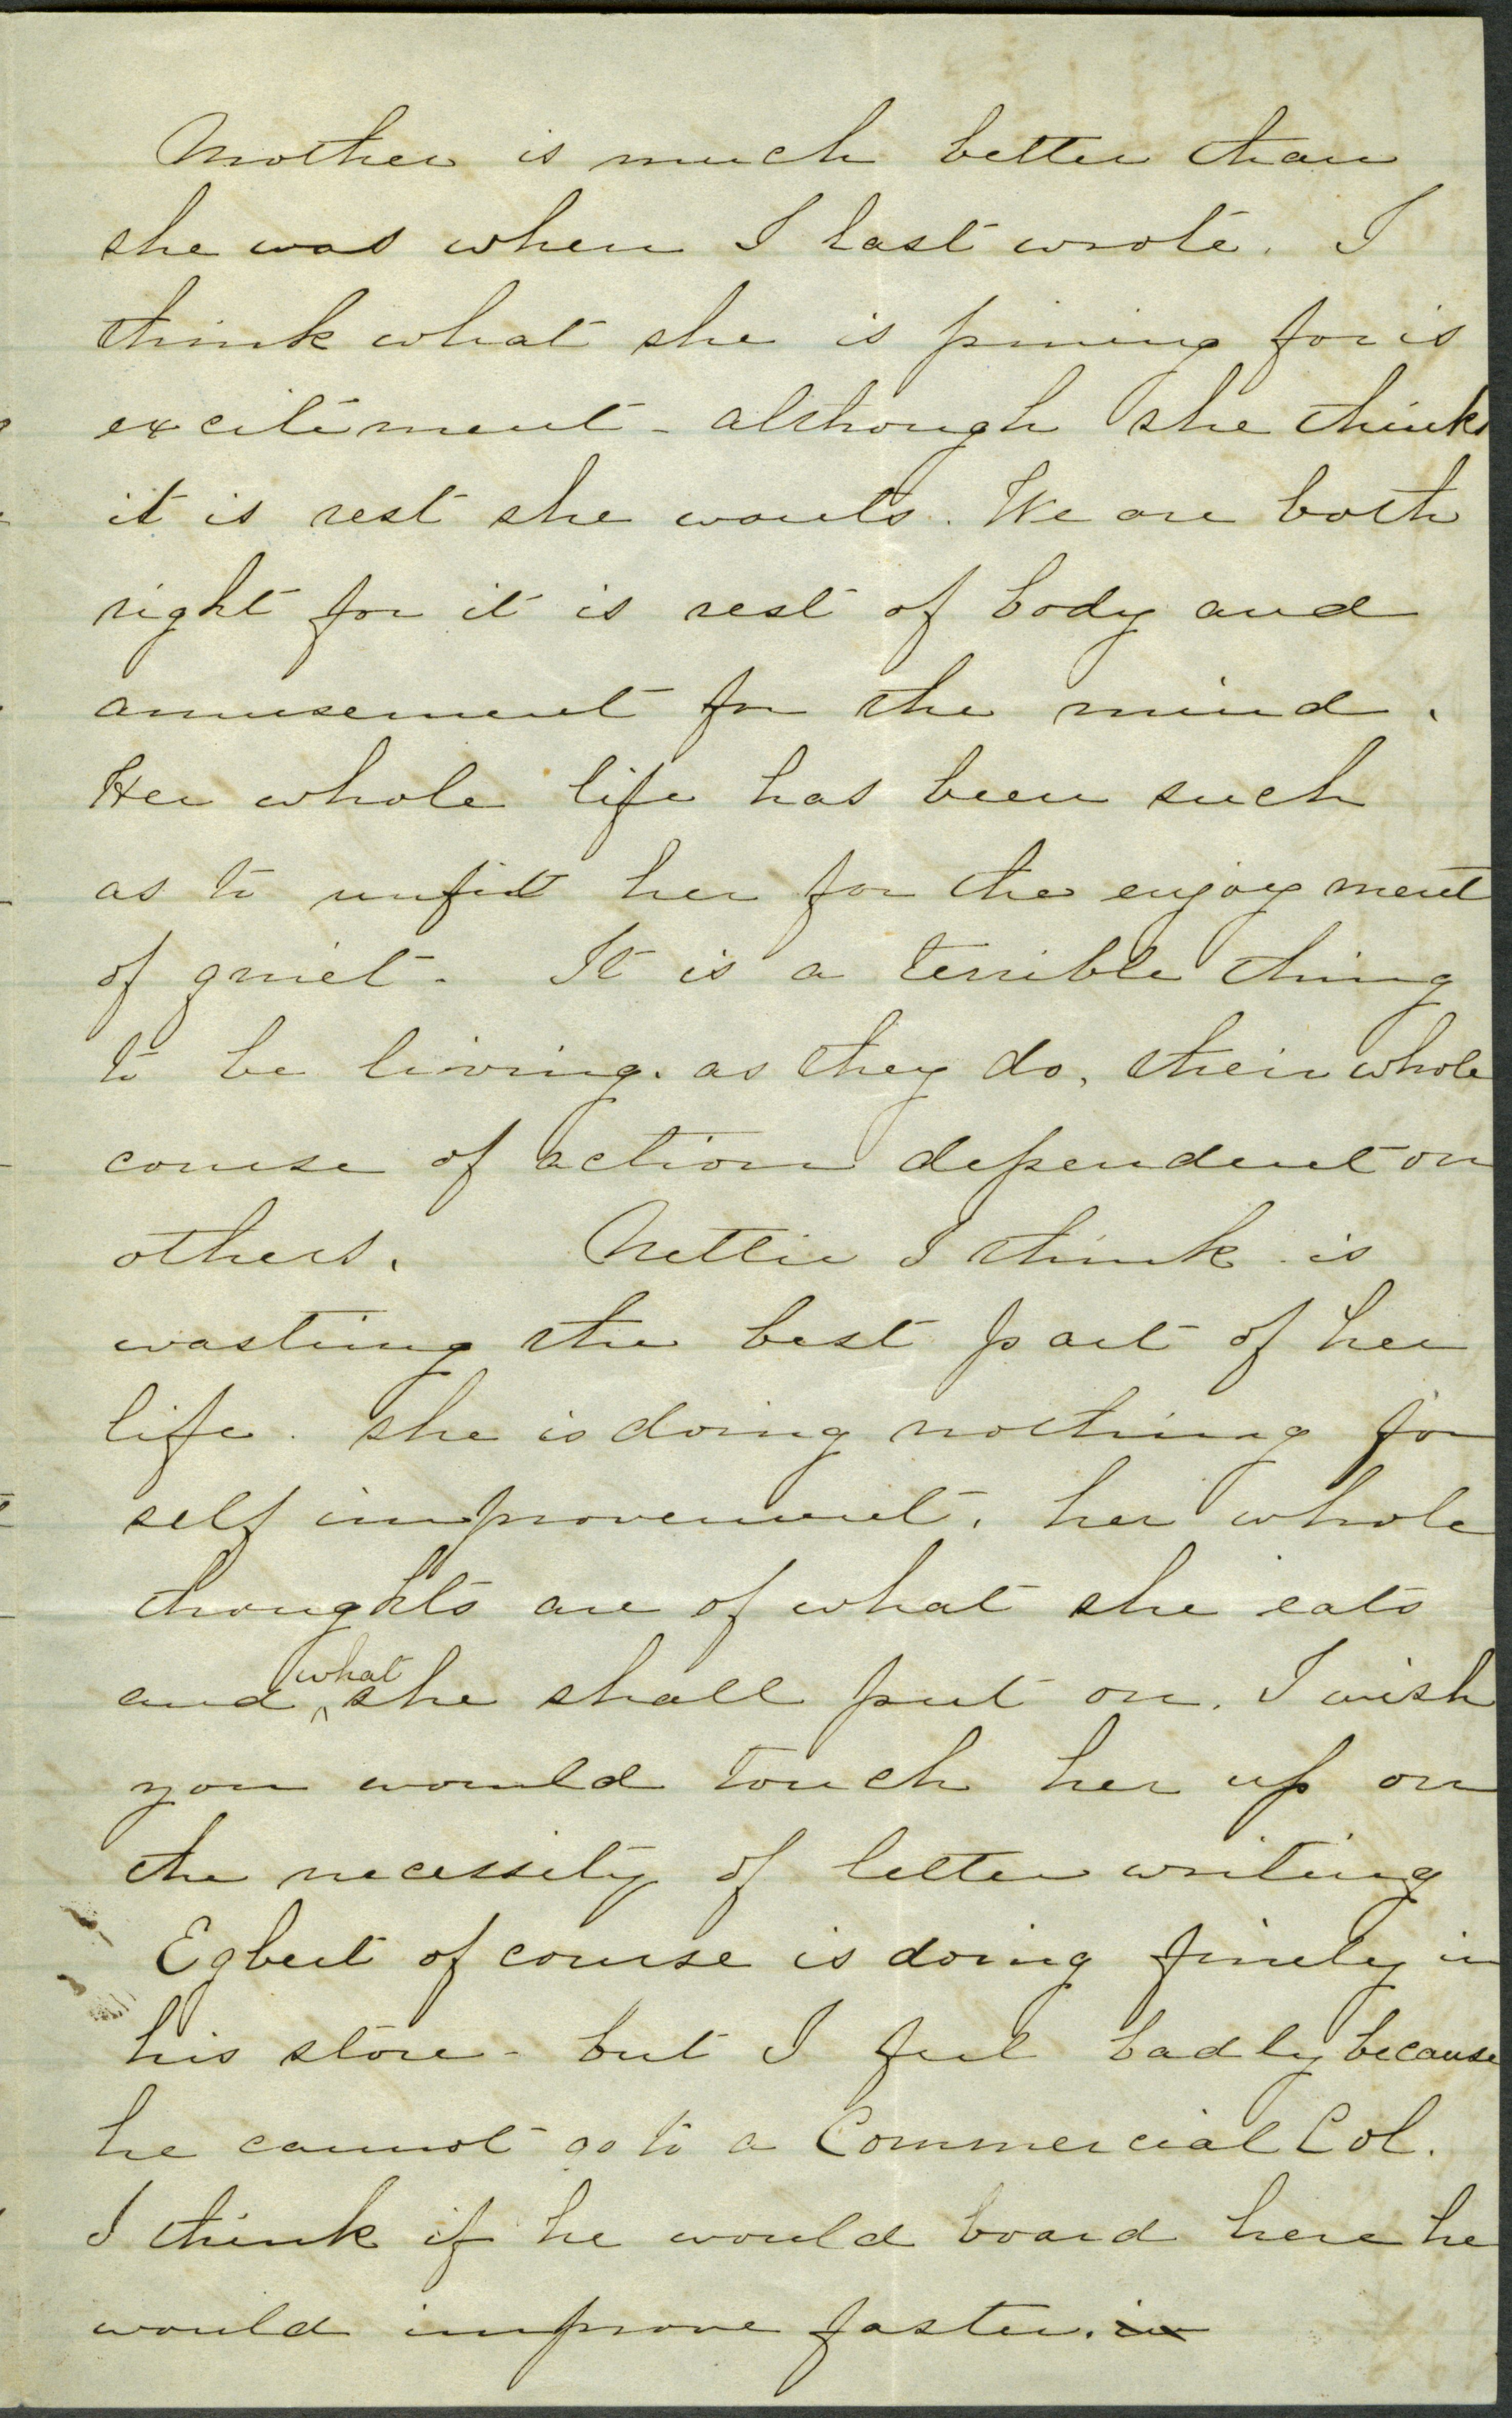 Mother is much better than
she was when I last wrote. I
think what she is pining for is
excitement - although she thinks
it is rest she wants. We are both
right for it is rest of body and
amusement for the mind.
Her whole life has been such
as to unfit her for the enjoyment
of quiet. It is a terrible thing
to be living. as they do, their whole
course of action dependent on
others. Nettie I think is
wasting the best part of her
life. She is doing nothing for
self improvement, her whole
thoughts are of what she eats
and what she shall put on. I wish
you would touch her up on
the necessity of letter writing
Egbert of course is doing finely in
his store - but I feel badly because
he cannot go to a Commercial Col.
I think if he would board here he
would improve faster. in